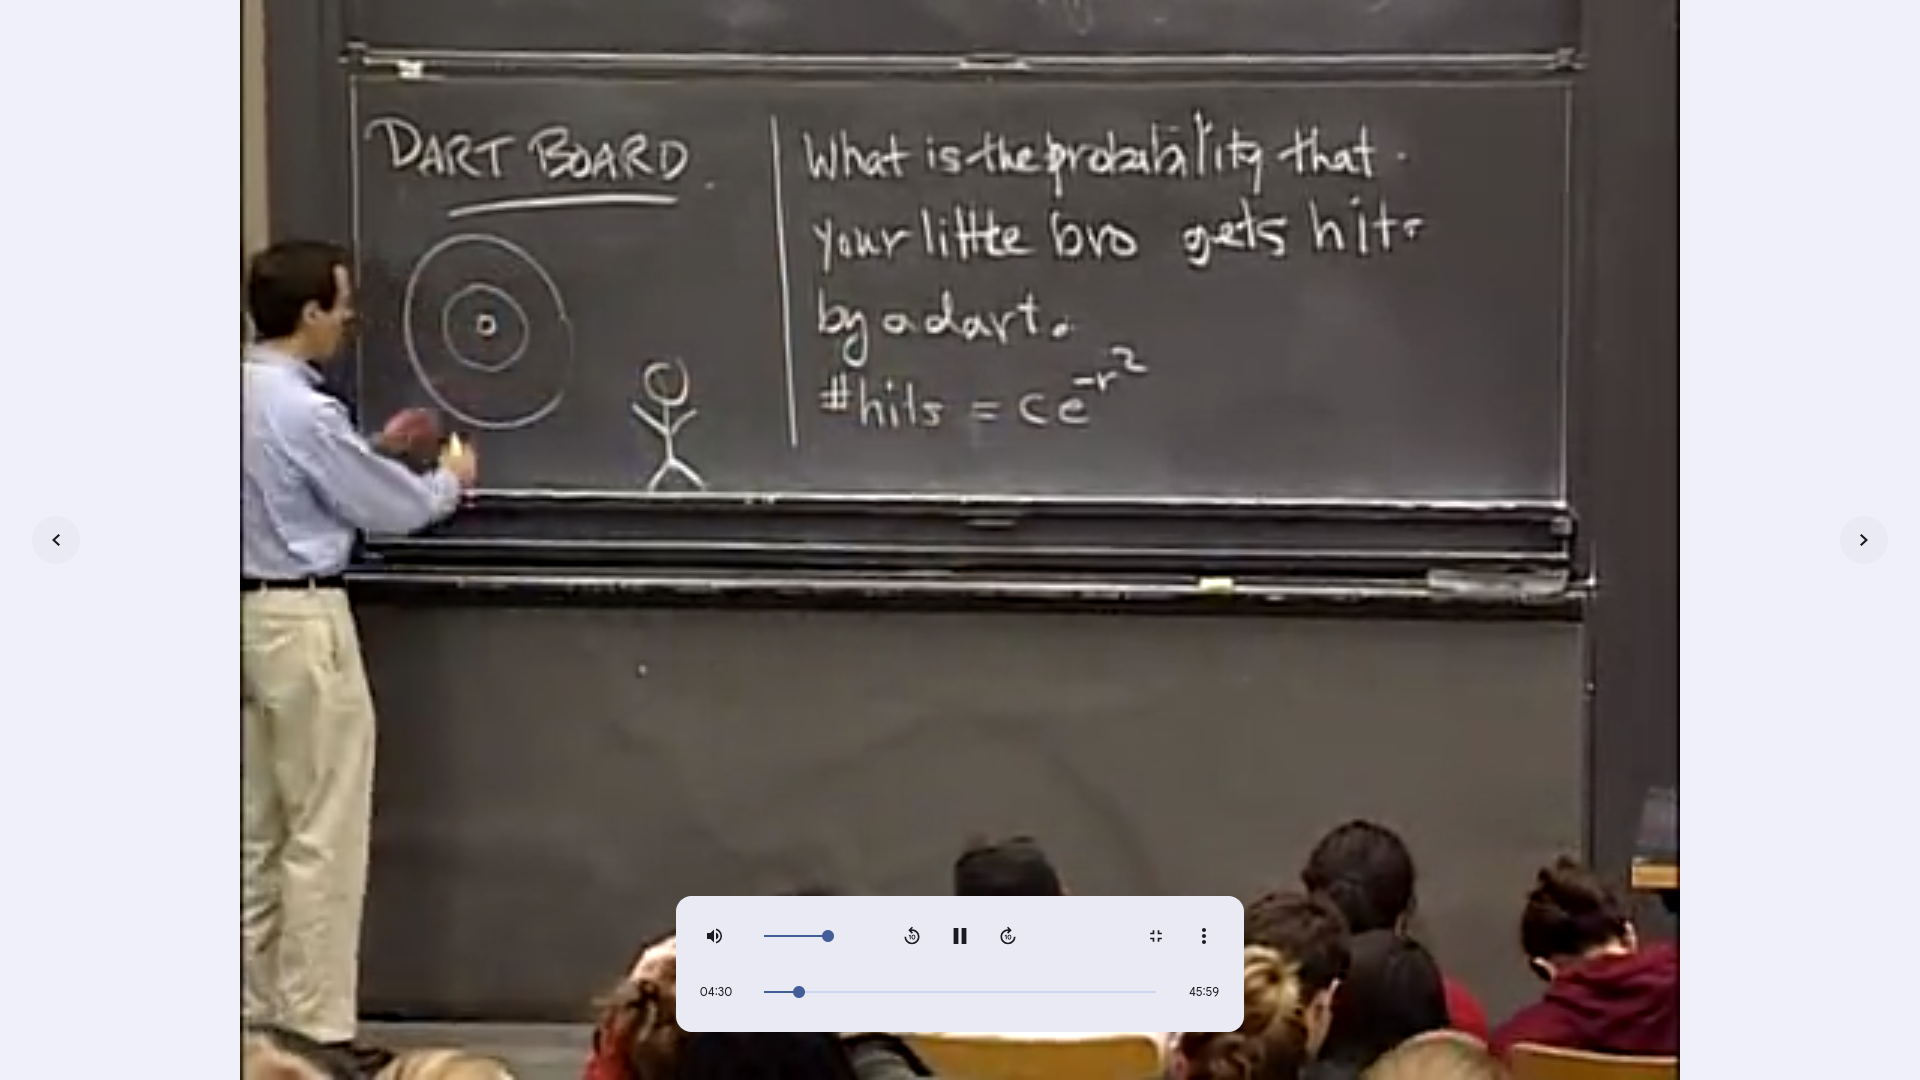 DART BOARD
What is the probability that
your little bro gets hit
by a dart.
#hits = ce^-r^2
10
10
04:30
45:59